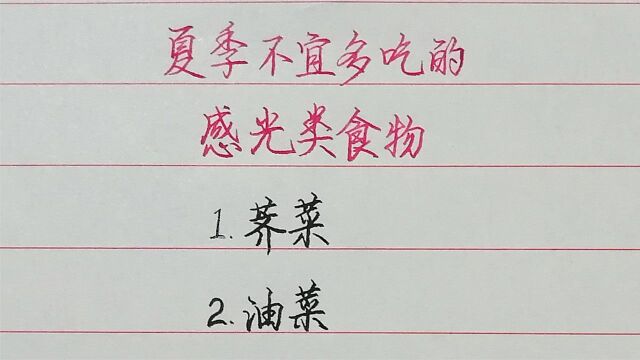 夏季不宜多吃的
感光类食物
1.荠菜
2.油菜